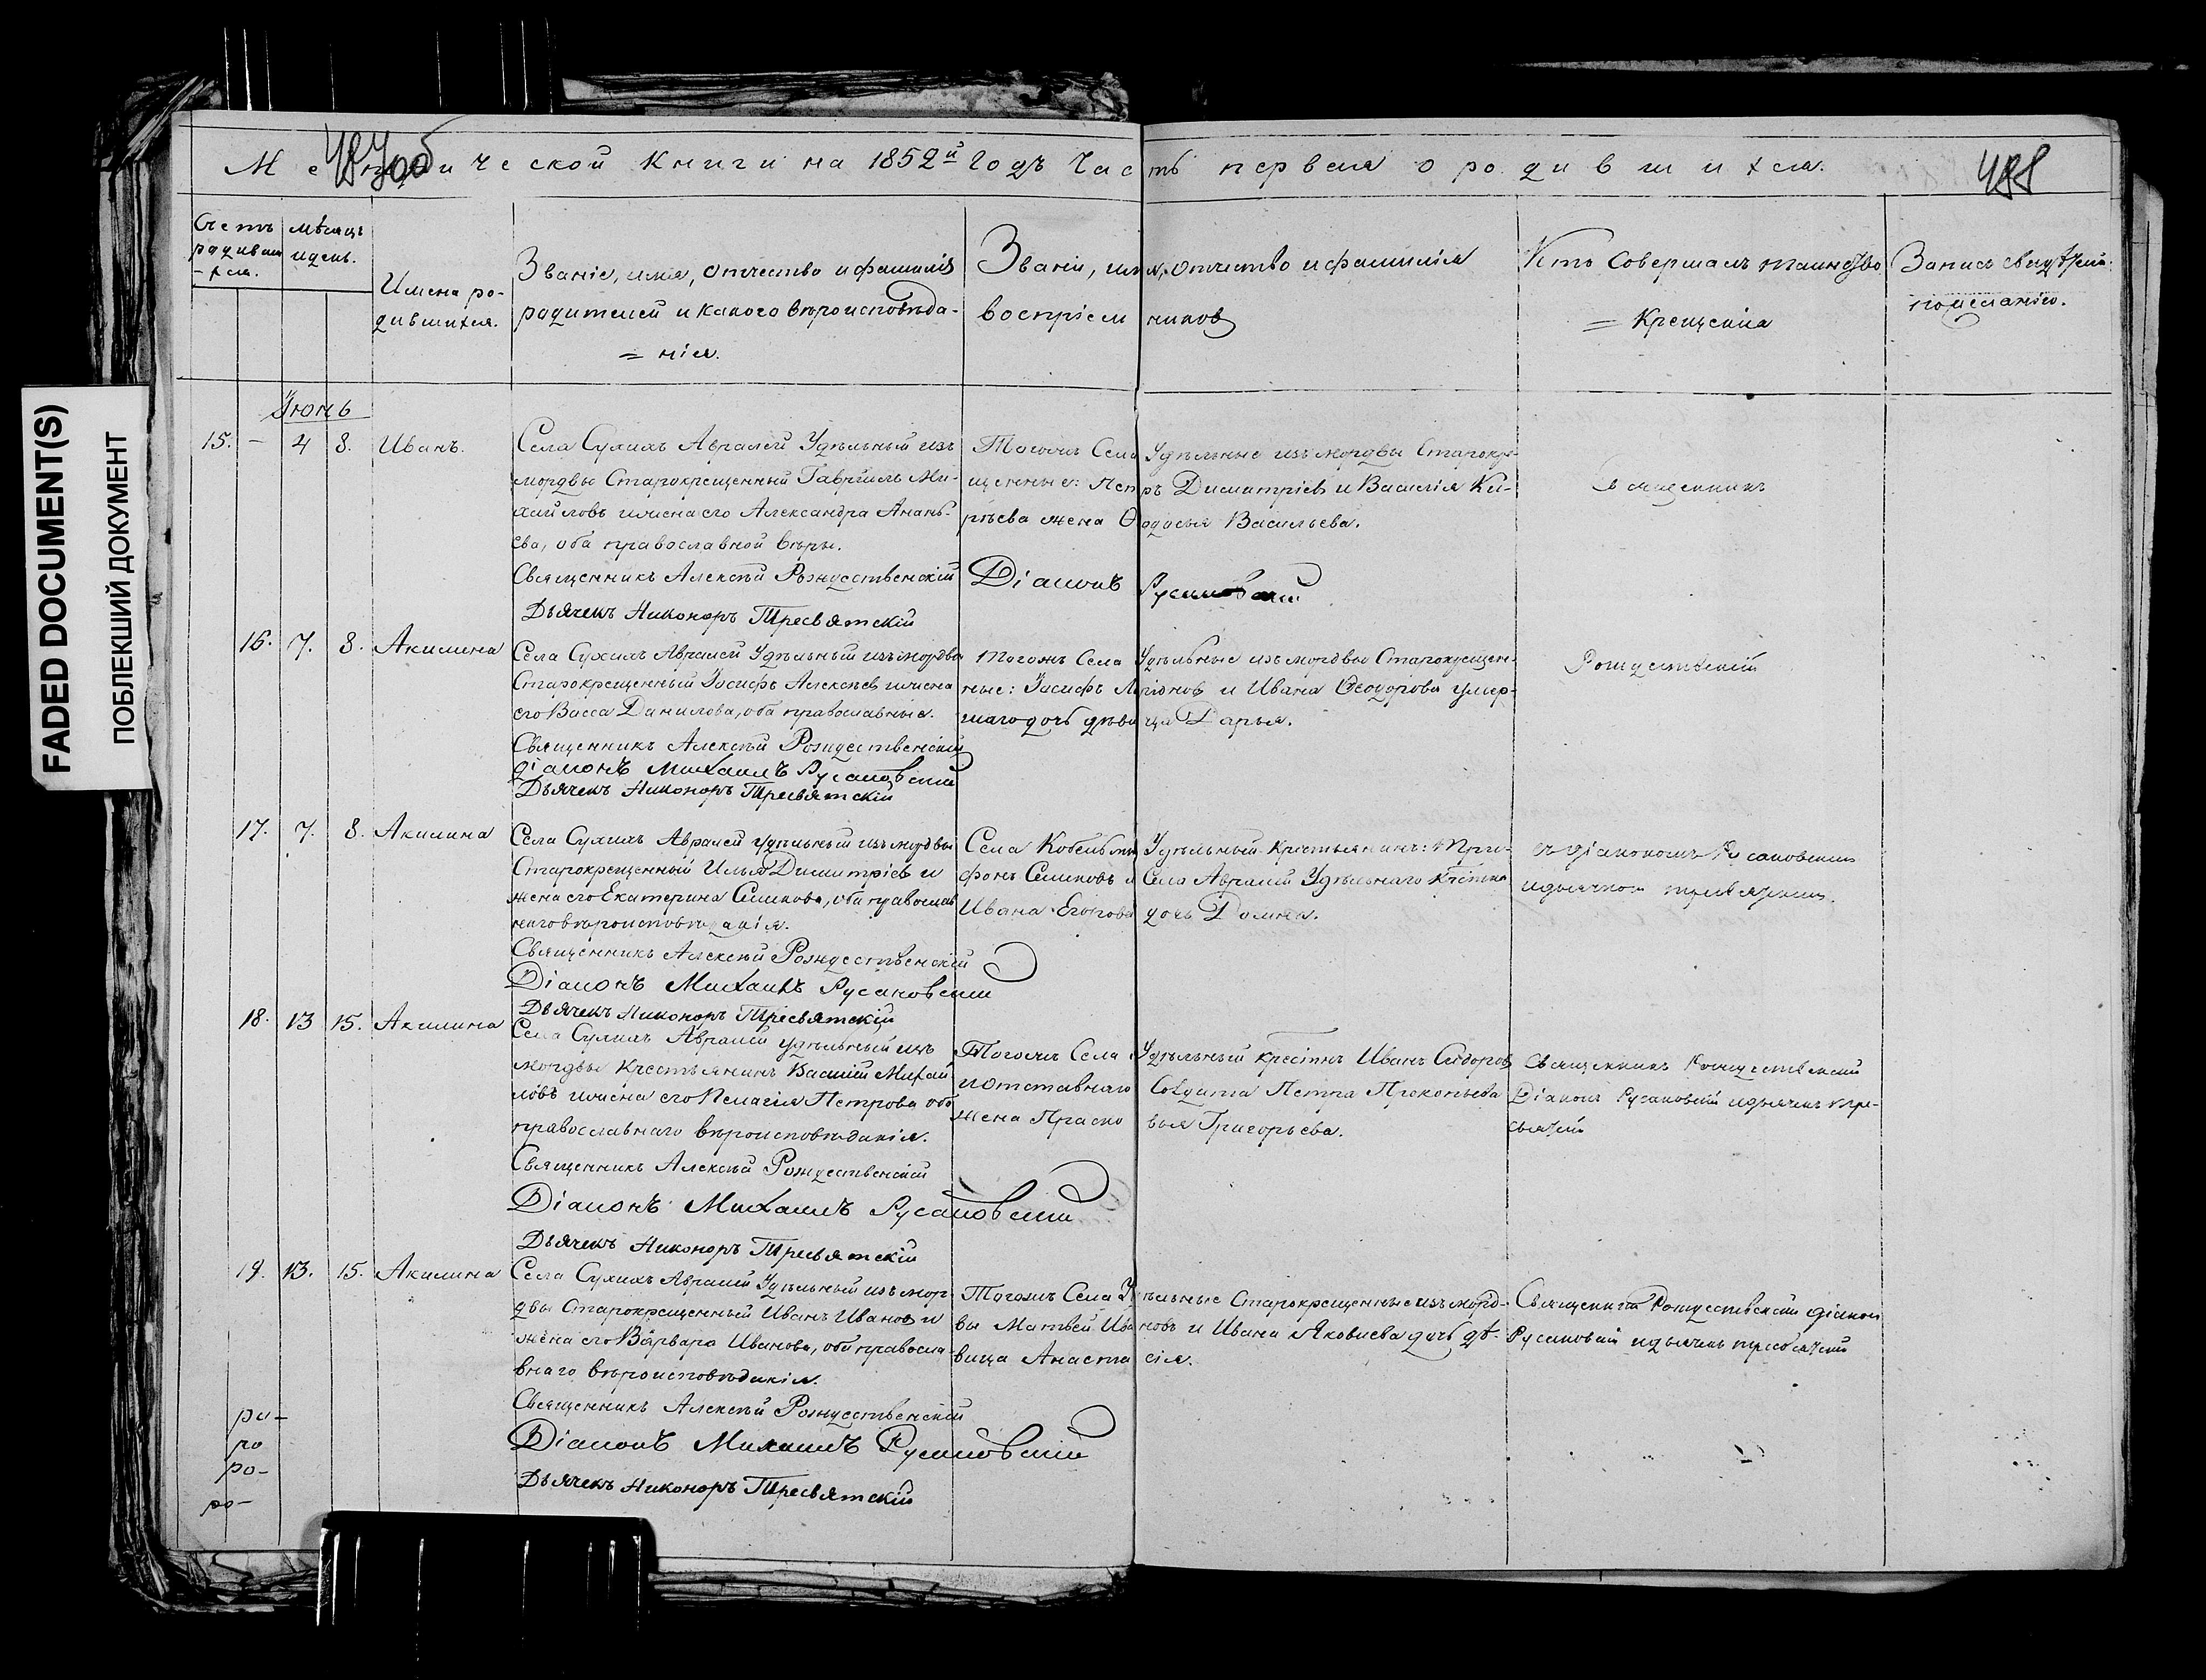 FADED DOCUMENT(S)
ПОБЛЕКШИЙ ДОКУМЕНТ
488
Метрической Книги на 1852й Годъ Часть первая о родившихся.
Счетъ родивш-хся.
Мѣсяцъ и день.
Имена ро-
дившихся.
Званіе, имя, отчество и фамилія
родителей и какого вѣроисповѣда-
= нія.
Званіе, имя, отчество и фамилія
воспріемниковъ
Кто Совершалъ таинство
= Крещенія
Запись свидѣтел.
по желанію.
Іюнь
15. - 4 8. Иванъ.
Села Сухихъ Авралей Удѣльный изъ
мордвы Старокрещенный Гаврiилъ Ми-
хайловъ и жена его Александра Анань-
ева, оба православной вѣры.
Священникъ Алексѣй Рождественскій
Дьячекъ Никоноръ Тресвятскій
Тогожъ Села Удѣльные изъ мордвы Старокре-
щенные: Петръ Димитріевъ и Василія Ки-
рѣева жена Ѳеодосья Васильева.
Діаконъ Русановскій
Священникъ
16. 7. 8. Акилина
Села Сухихъ Авралей Удѣльный изъ мордвы
Старокрещенный Іосифъ Алексѣевъ и жена
его Васса Данилова, оба православные.
Священникъ Алексѣй Рождественскій
діаконъ Михаилъ Русановскій
Дьячекъ Никоноръ Тресвятскій
Тогожъ Села Удѣльные изъ мордвы Старокрещен-
ные: Іосифъ и Ивана Ѳеодорова умер-
шаго дочь дѣвица Дарья.
Рождественскій
17. 7. 8. Акилина
Села Сухихъ Авралей удѣльный изъ мордвы
Старокрещенный Илья Димитріевъ и
жена его Екатерина Семенова, оба православ
наго вѣроисповѣданія.
Священникъ Алексѣй Рождественскій
Діаконъ Михаилъ Русановскій
Дьячекъ Никоноръ Тресвятскій
Села Удѣльный Крестьянинъ: Три-
фонъ Семеновъ и Села Авралей Удѣльнаго Крестина
Ивана Егорова дочь Домна.
съ діакономъ Русановскимъ
и дьячкомъ Тресвятскимъ.
18. 13 15. Акилина
Села Сухихъ Авралей удѣльный изъ
мордвы Крестьянинъ Василій Михай
ловъ и жена его Пелагія Петрова оба
православнаго вѣроисповѣданія.
Священникъ Алексѣй Рождественскій
Діаконъ Михаилъ Русановскій
Дьячекъ Никоноръ Тресвятскій
Тогожъ Села Удѣльный крестінъ Иванъ Сидоровъ
и отставнаго Солдата Петра Прокопьева
жена Прасковья Григорьева.
Священникъ Рождественскій
Діаконъ Русановскій и дьячекъ Тре-
святскій
19. 13. 15. Акилина
Села Сухихъ Авралей Удѣльный изъ мор-
двы Старокрещенный Иванъ Ивановъ и
жена его Варвара Иванова, оба правосла-
внаго вѣроисповѣданія.
Священникъ Алексѣй Рождественскій
Діаконъ Михаилъ Русановскій
Дьячекъ Никоноръ Тресвятскій
Тогожъ Села Удѣльные Старокрещенные изъ морд-
вы Матвей Ивановъ и Ивана Яковлева дочь дѣ-
вица Анастасія.
Священникъ Рождественскій діаконъ
Русановскій и дьячекъ Тресвятскій
ро-
ро
ро-
ро-